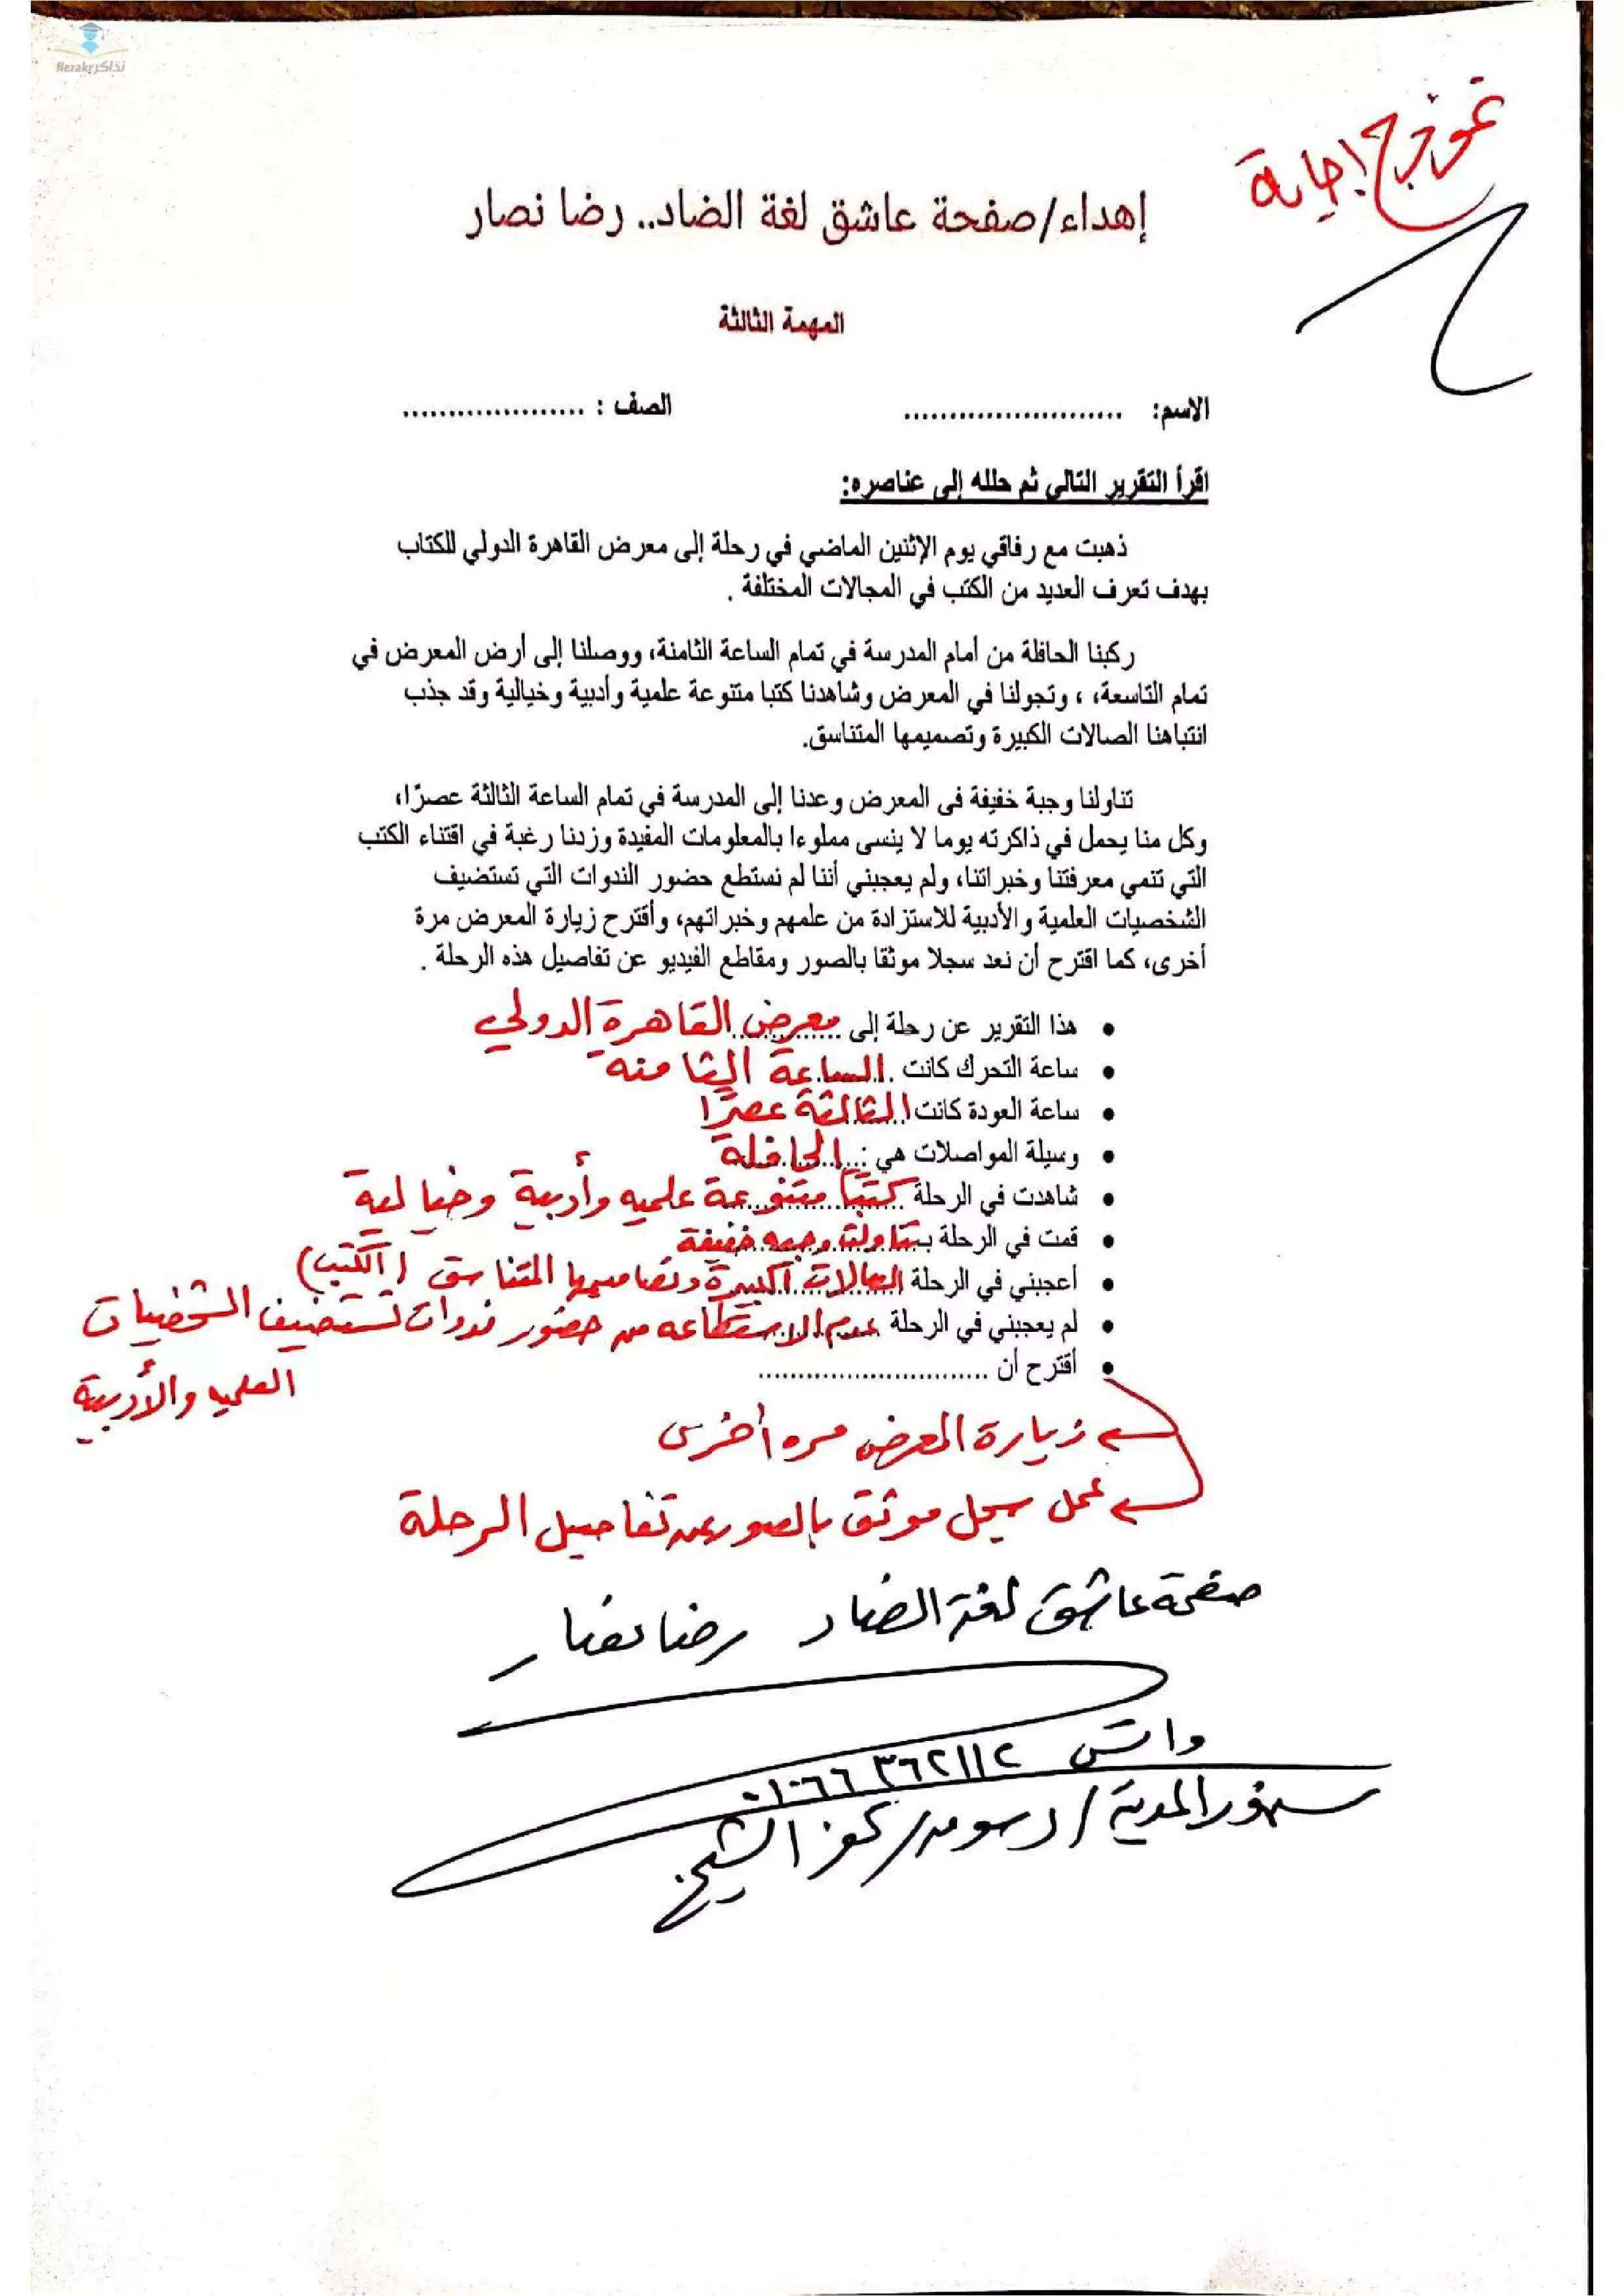 نذاكر Nezakr
نموذج إجابة
إهداء/صفحة عاشق لغة الضاد.. رضا نصار
المهمة الثالثة
الاسم: ........................ الصف : ....................
اقرأ التقرير التالي ثم حلله إلى عناصره:
ذهبت مع رفاقي يوم الإثنين الماضي في رحلة إلى معرض القاهرة الدولي للكتاب
بهدف تعرف العديد من الكتب في المجالات المختلفة .
ركبنا الحافلة من أمام المدرسة في تمام الساعة الثامنة، ووصلنا إلى أرض المعرض في
تمام التاسعة، ، وتجولنا في المعرض وشاهدنا كتبا متنوعة علمية وأدبية وخيالية وقد جذب
انتباهنا الصالات الكبيرة وتصميمها المتناسق.
تناولنا وجبة خفيفة فى المعرض وعدنا إلى المدرسة في تمام الساعة الثالثة عصرًا،
وكل منا يحمل في ذاكرته يوما لا ينسى مملوءا بالمعلومات المفيدة وزدنا رغبة في اقتناء الكتب
التي تنمي معرفتنا وخبراتنا، ولم يعجبني أننا لم نستطع حضور الندوات التي تستضيف
الشخصيات العلمية والأدبية للاستزادة من علمهم وخبراتهم، وأقترح زيارة المعرض مرة
أخرى، كما اقترح أن نعد سجلا موثقا بالصور ومقاطع الفيديو عن تفاصيل هذه الرحلة .
• هذا التقرير عن رحلة إلى معرض القاهرة الدولي
• ساعة التحرك كانت الساعة الثامنة
• ساعة العودة كانت الثالثة عصرًا
• وسيلة المواصلات هي : الحافلة
• شاهدت في الرحلة كتبًا متنوعة علميه وأدبية وخيالية
• قمت في الرحلة بـ تناولت وجبه خفيفة
• أعجبني في الرحلة الصالات الكبيرة وتصاميمها المتناسق (الكتب)
• لم يعجبني في الرحلة عدم الاستطاعه من حضور ندوات تستضيف الشخصيات
العلميه والأدبية
• أقترح أن ..........................
زيارة المعرض مره أخرى
عمل سجل موثق بالصور عن تفاصيل الرحلة
صفحة عاشق لغة الضاد رضا نصار
واتس ٠١٠٦٦٣٦٢١١٢
سنهور المدينة / دسوق / كفر الشيخ